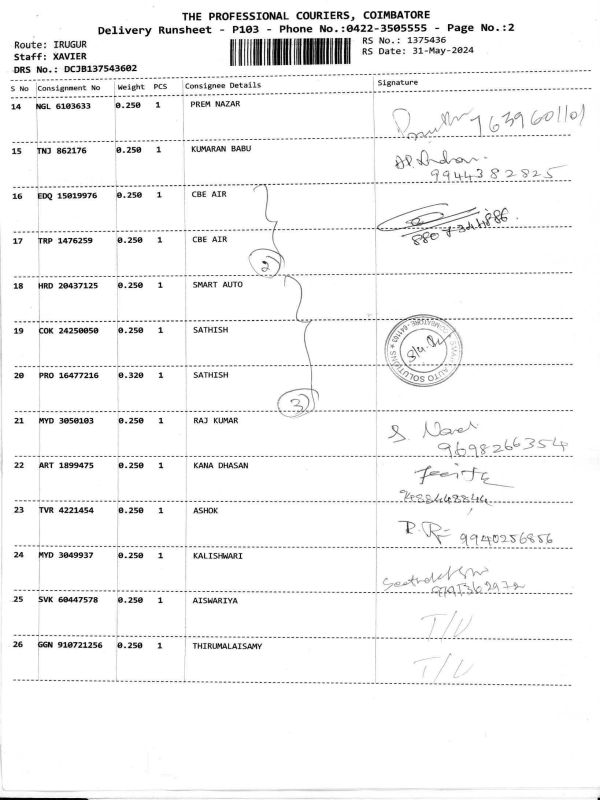 THE PROFESSIONAL COURIERS, COIMBATORE
Delivery Runsheet - P103 - Phone No.:0422-3505555 - Page No.:2
Route: IRUGUR
RS No.: 1375436
Staff: XAVIER
RS Date: 31-May-2024
DRS No.: DCJB137543602
S No Consignment No Weight PCS Consignee Details Signature
14 NGL 6103633 0.250 1 PREM NAZAR
7639601101
15 TNJ 862176 0.250 1 KUMARAN BABU
9944382825
16 EDQ 15019976 0.250 1 CBE AIR
17 TRP 1476259 0.250 1 CBE AIR
2
18 HRD 20437125 0.250 1 SMART AUTO
19 COK 24250050 0.250 1 SATHISH
SMART AUTO SOLUTIONS
COIMBATORE
20 PRO 16477216 0.320 1 SATHISH
3
21 MYD 3050103 0.250 1 RAJ KUMAR
9698266354
22 ART 1899475 0.250 1 KANA DHASAN
23 TVR 4221454 0.250 1 ASHOK
9940256856
24 MYD 3049937 0.250 1 KALISHWARI
25 SVK 60447578 0.250 1 AISWARIYA
26 GGN 910721256 0.250 1 THIRUMALAISAMY